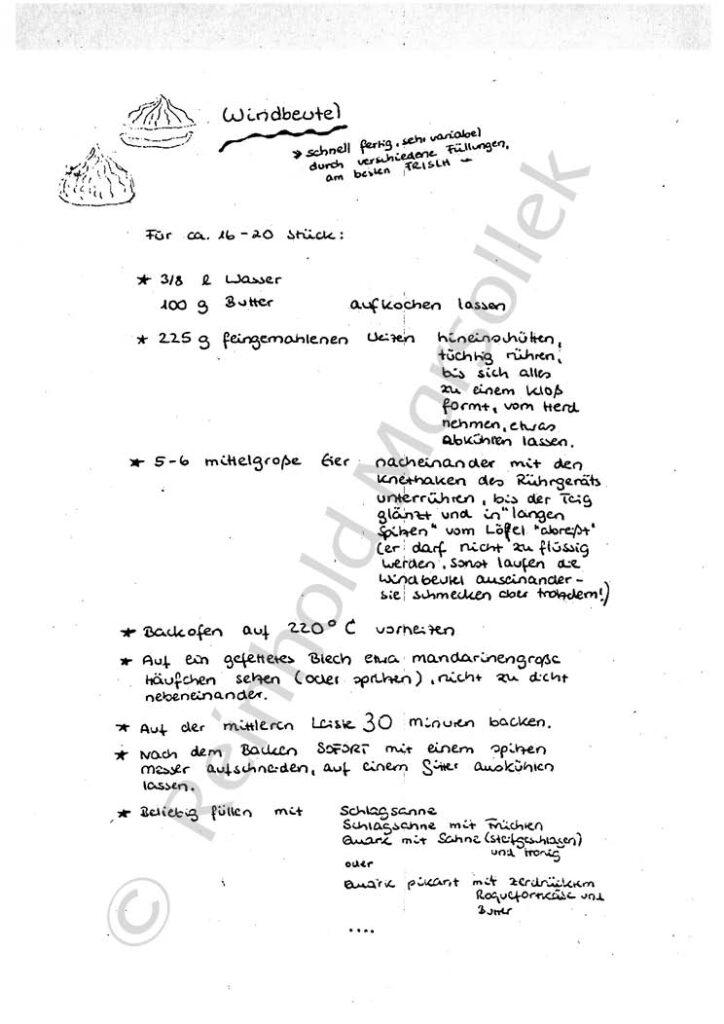 Windbeutel
→ schnell fertig, sehr variabel
durch verschiedene Füllungen,
am besten FRISCH –
Für ca. 16-20 Stück:
* 3/8 l Wasser
100 g Butter aufkochen lassen
* 225 g feingemahlenen Weizen hineinschütten,
tüchtig rühren,
bis sich alles
zu einem Kloß
formt, vom Herd
nehmen, etwas
abkühlen lassen.
* 5-6 mittelgroße Eier nacheinander mit den
Knethaken des Rührgeräts
unterrühren, bis der Teig
glänzt und in "langen
Spitzen" vom Löfel "abreßt"
(er darf nicht zu flüssig
werden, sonst laufen die
Windbeutel auseinander-
sie schmecken aber trotzdem!)
* Backofen auf 220° C vorheizen
* Auf ein gefettetes Blech etwa mandarinengroße
Häufchen setzen (oder spritzen), nicht zu dicht
nebeneinander.
* Auf der mittleren Leiste 30 Minuten backen.
* Nach dem Backen SOFORT mit einem spitzen
Messer aufschneiden, auf einem Gitter auskühlen
lassen.
* Beliebig füllen mit Schlagsahne
Schlagsahne mit Früchten
Quark mit Sahne (steifgeschlagen)
und Honig
oder
Quark pikant mit zerdrücktem
Roquefortkäse und
Butter
....
© Reinhold Marsollek